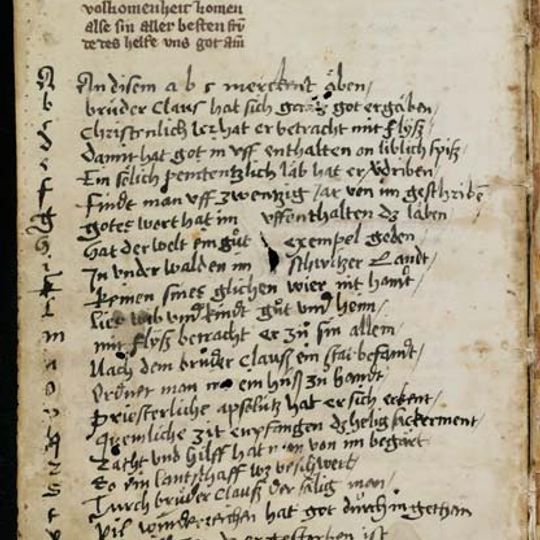 volkomenheit komen
alse sin aller besten frü
de des helfe vns got am̄
A An disem a b c merckent äben /
b brüder Claus hat sich gantz got ergäben /
c Christenlich ler hat er betracht mit flyß /
d damit hat got in vff enthalten on liblich spiß /
e Ein sölich penitentzlich läb hat er v̈driben
f findt man vff zwentzig Jar von im geschribē
g gotes wort hat im vffenthalten dz läben
h hat der welt ein güt exempel geben
i In vnder walden im schwitzer Landt /
k keinen sines glichen wier nit handt /
l lies wib vnd kindt güt vnd heim /
m mit flyß betracht er zü sin allein /
n Nach dem brüder Clauß ein stat besandt /
o Ordnet man im ein huß zu handt /
p priesterliche apsolutz hat er sich erkent /
q zit enpfangen dz helig sackerment /
r Racht vnd hilff hat man von im begärt
s So ein lantschaff wz beschwert /
t Durch brüder Clauß der sälig man /
v vil wunderzeichen hat got durch in gethan
gestorben ist